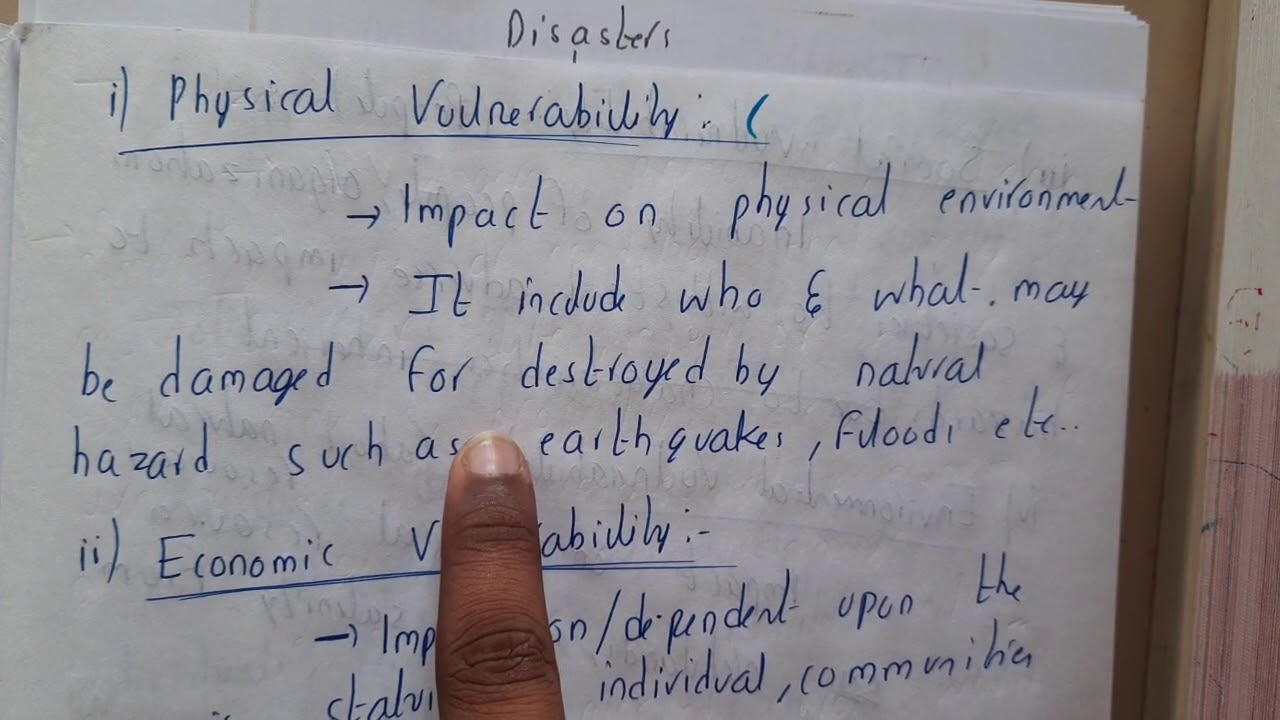 Disasters
i) Physical Vulnerability :- (
→ Impact on physical environment
→ It include who & what may
be damaged for destroyed by natural
hazard such as earthquakes, floods etc..
ii) Economic ability :-
→ on/dependent upon the
individual, communities